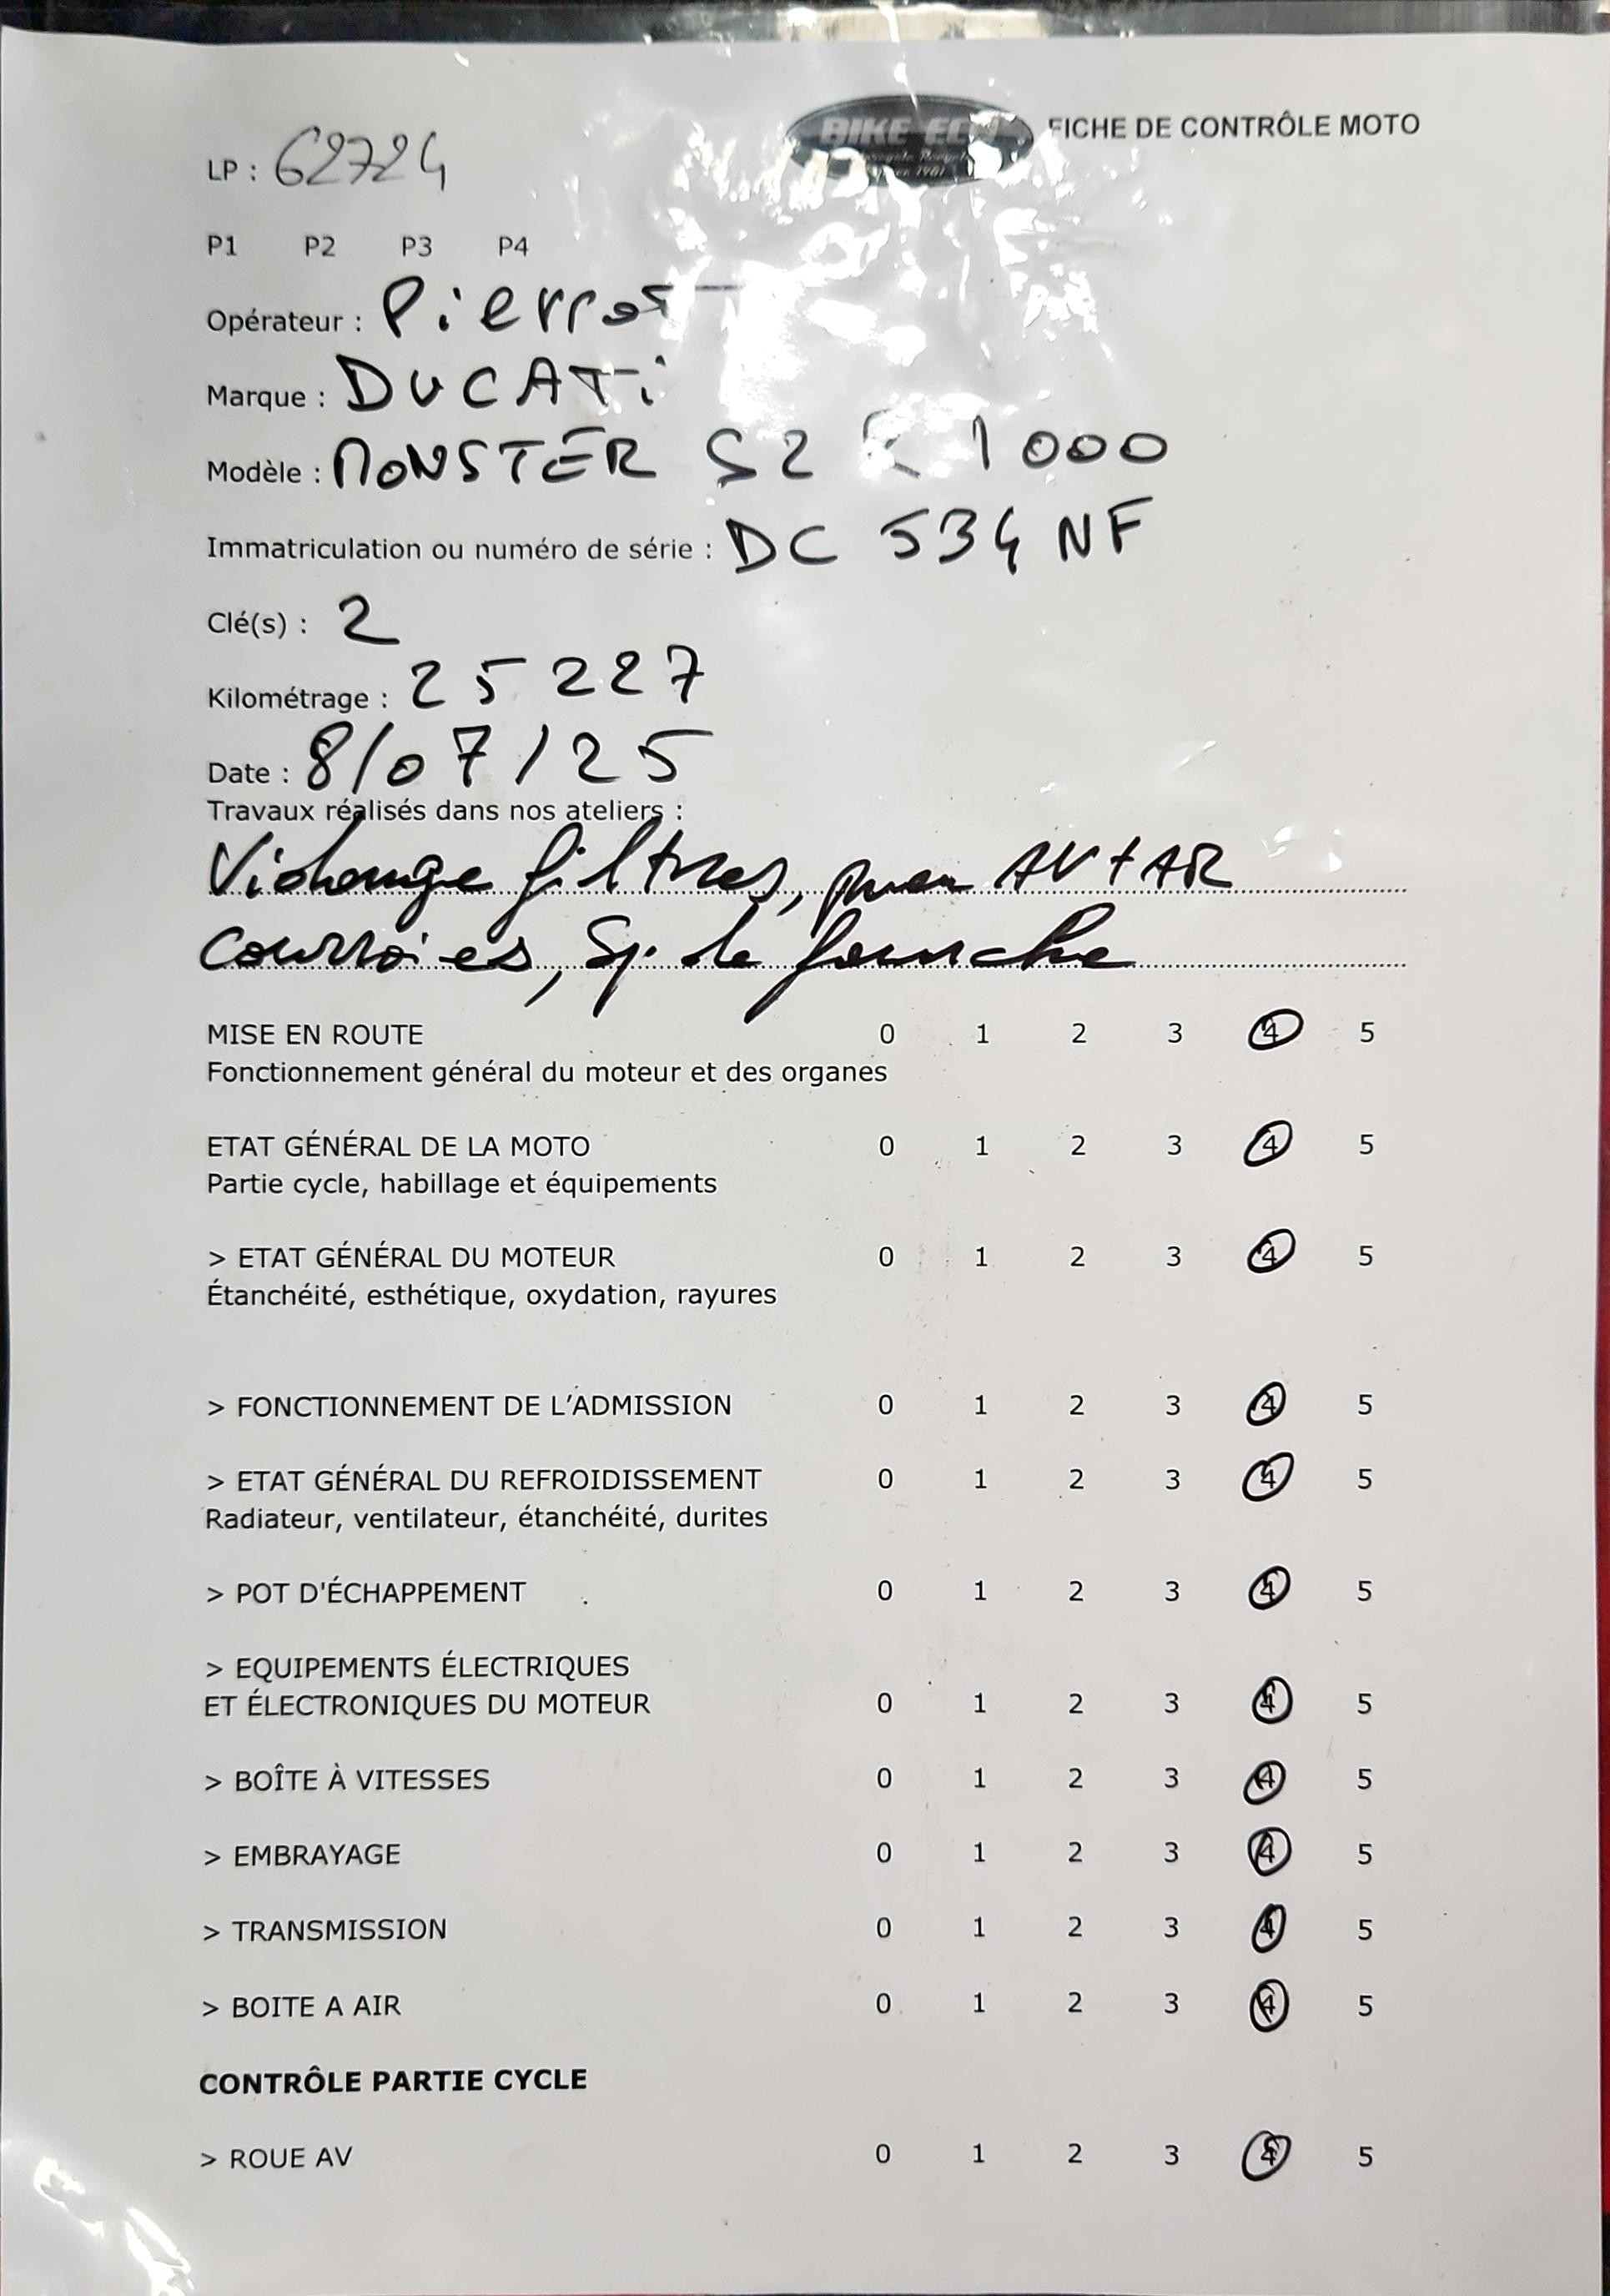 BIKE ECO
FICHE DE CONTRÔLE MOTO
LP : 62724
P1 P2 P3 P4
Opérateur : Pierrot
Marque : DUCATi
Modèle : MONSTER S2 R 1000
Immatriculation ou numéro de série : DC 534 NF
Clé(s) : 2
Kilométrage : 25227
Date : 8/07/25
Travaux réalisés dans nos ateliers :
Vidange filtres, pneu AV + AR
courroies, Spi de fourche
MISE EN ROUTE 0 1 2 3 4 5
Fonctionnement général du moteur et des organes
ETAT GÉNÉRAL DE LA MOTO 0 1 2 3 4 5
Partie cycle, habillage et équipements
> ETAT GÉNÉRAL DU MOTEUR 0 1 2 3 4 5
Étanchéité, esthétique, oxydation, rayures
> FONCTIONNEMENT DE L'ADMISSION 0 1 2 3 4 5
> ETAT GÉNÉRAL DU REFROIDISSEMENT 0 1 2 3 4 5
Radiateur, ventilateur, étanchéité, durites
> POT D'ÉCHAPPEMENT 0 1 2 3 4 5
> EQUIPEMENTS ÉLECTRIQUES
ET ÉLECTRONIQUES DU MOTEUR 0 1 2 3 4 5
> BOÎTE À VITESSES 0 1 2 3 4 5
> EMBRAYAGE 0 1 2 3 4 5
> TRANSMISSION 0 1 2 3 4 5
> BOITE A AIR 0 1 2 3 4 5
CONTRÔLE PARTIE CYCLE
> ROUE AV 0 1 2 3 4 5